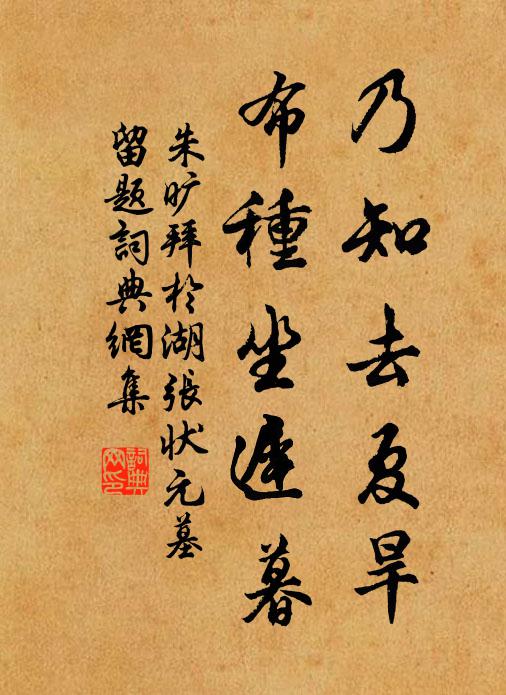 乃知去夏旱
布種坐遲暮
朱旷拜於湖張狀元墓
留题詞典網集
詞典網印